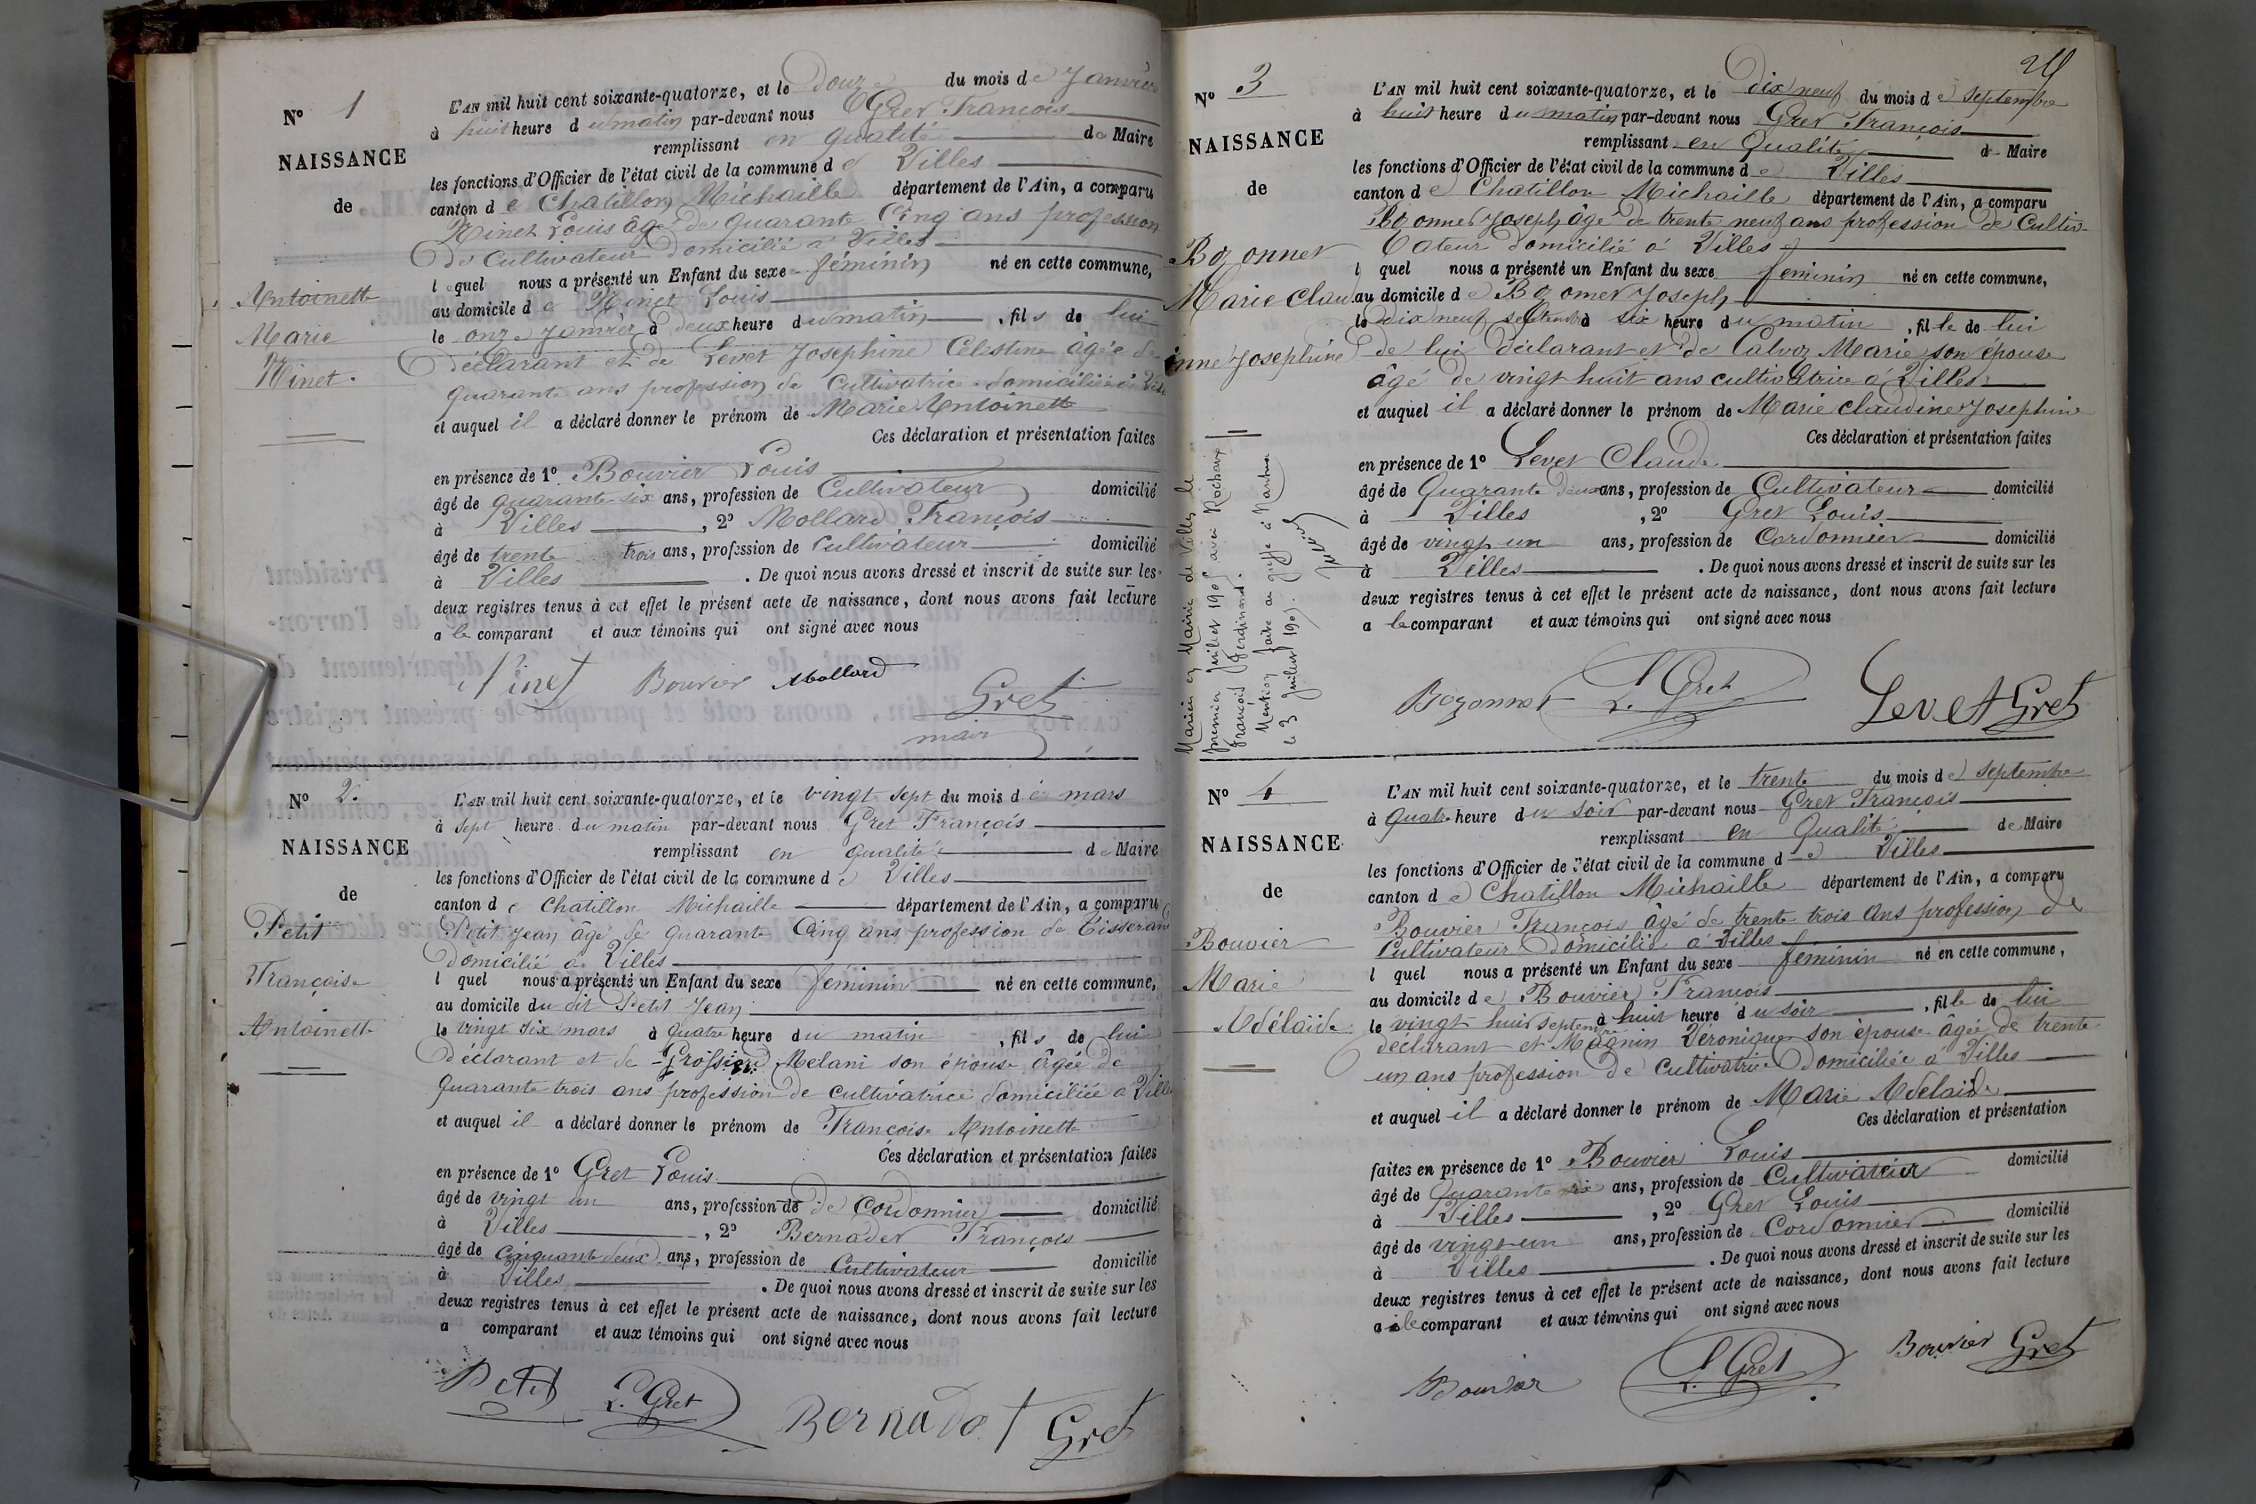 Nº 1
NAISSANCE
de
Antoinette
Marie
Ninet.
L'AN mil huit cent soixante-quatorze, et le Douze du mois de Janvier
à huit heure du matin par-devant nous Gret François
remplissant en qualité de Maire
les fonctions d'Officier de l'état civil de la commune de Villes
canton de Chatillon Michaille département de l'Ain, a comparu
Ninet Louis âgé de quarante Cinq ans profession
de Cultivateur domicilié à Villes
lequel nous a présenté un Enfant du sexe féminin né en cette commune,
au domicile de Ninet Louis
le onze Janvier à deux heure du matin, fils de lui
déclarant et de Levet Josephine Célestine âgée de
quarante ans profession de Cultivatrice domiciliée à Villes
et auquel il a déclaré donner le prénom de Marie Antoinette
Ces déclaration et présentation faites
en présence de 1º Bouvier Louis
âgé de quarante six ans, profession de Cultivateur domicilié
à Villes, 2º Mollard François
âgé de trente trois ans, profession de Cultivateur domicilié
à Villes. De quoi nous avons dressé et inscrit de suite sur les
deux registres tenus à cet effet le présent acte de naissance, dont nous avons fait lecture
a le comparant et aux témoins qui ont signé avec nous
Ninet Bouvier Mollard Gret
maire
Nº 2.
NAISSANCE
de
Petit
Françoise
Antoinette
L'AN mil huit cent soixante-quatorze, et le vingt sept du mois de mars
à sept heure du matin par-devant nous Gret François
remplissant en qualité de Maire
les fonctions d'Officier de l'état civil de la commune de Villes
canton de Chatillon Michaille département de l'Ain, a comparu
Petit Jean âgé de quarante Cinq ans profession de Tisserand
domicilié à Villes
l quel nous a présenté un Enfant du sexe féminin né en cette commune,
au domicile du dit Petit Jean
le vingt six mars à quatre heure du matin, fils de lui
déclarant et de Melani son épouse âgée de
quarante trois ans profession de cultivatrice domiciliée à Villes
et auquel il a déclaré donner le prénom de Françoise Antoinette
Ces déclaration et présentation faites
en présence de 1º Gret Louis
âgé de vingt un ans, profession de de Cordonnier domicilié
à Villes, 2º Bernadet François
âgé de cinquante deux ans, profession de Cultivateur domicilié
à Villes. De quoi nous avons dressé et inscrit de suite sur les
deux registres tenus à cet effet le présent acte de naissance, dont nous avons fait lecture
a comparant et aux témoins qui ont signé avec nous
Petit L. Gret Bernadet Gret
Nº 3
NAISSANCE
de
Bozonnet
Marie Claud
inne Josephine
Mariée en Mairie de Villes le
premier Juillet 1905 avec Rochaix
François Ferdinand.
Mention faite au greffe à Nantua
le 3 Juillet 1905.
24
L'AN mil huit cent soixante-quatorze, et le Dix neuf du mois de Septembre
à huit heure du matin par-devant nous Gret François
remplissant en Qualité d Maire
les fonctions d'Officier de l'état civil de la commune de Villes
canton de Chatillon Michaille département de l'Ain, a comparu
Bozonnet Joseph âgé de trente neuf ans profession de Cultiv
ateur domicilié à Villes
l quel nous a présenté un Enfant du sexe féminin né en cette commune,
au domicile de Bozonnet Joseph
le dix neuf septembre à six heure du matin, fille de lui
de lui déclarant et de Calvoz Marie son épouse
âgé de vingt huit ans cultivatrice à Villes
et auquel il a déclaré donner le prénom de Marie claudine Josephine
Ces déclaration et présentation faites
en présence de 1º Levet Claude
âgé de Quarante deux ans, profession de Cultivateur domicilié
à Villes, 2º Gret Louis
âgé de vingt un ans, profession de Cordonnier domicilié
à Villes. De quoi nous avons dressé et inscrit de suite sur les
deux registres tenus à cet effet le présent acte de naissance, dont nous avons fait lecture
a le comparant et aux témoins qui ont signé avec nous
Bozonnet L. Gret Levet Gret
Nº 4
NAISSANCE
de
Bouvier
Marie
Adélaide
L'AN mil huit cent soixante-quatorze, et le trente du mois de Septembre
à Quatre heure du soir par-devant nous Gret François
remplissant en Qualité de Maire
les fonctions d'Officier de l'état civil de la commune de Villes
canton de Chatillon Michaille département de l'Ain, a comparu
Bouvier François âgé de trente trois ans profession de
Cultivateur Domicilié à Villes
l quel nous a présenté un Enfant du sexe féminin né en cette commune,
au domicile de Bouvier François
le vingt huit septembre à huit heure du soir, fille de lui
déclarant et Magnin Véronique son épouse âgée de trente
un ans profession de cultivatrice Domiciliée à Villes
et auquel il a déclaré donner le prénom de Marie Adelaide
Ces déclaration et présentation
faites en présence de 1º Bouvier Louis
âgé de Quarante six ans, profession de Cultivateur domicilié
à Villes, 2º Gret Louis
âgé de vingt un ans, profession de Cordonnier domicilié
à Villes. De quoi nous avons dressé et inscrit de suite sur les
deux registres tenus à cet effet le présent acte de naissance, dont nous avons fait lecture
a le comparant et aux témoins qui ont signé avec nous
Bouvier L. Gret Bouvier Gret